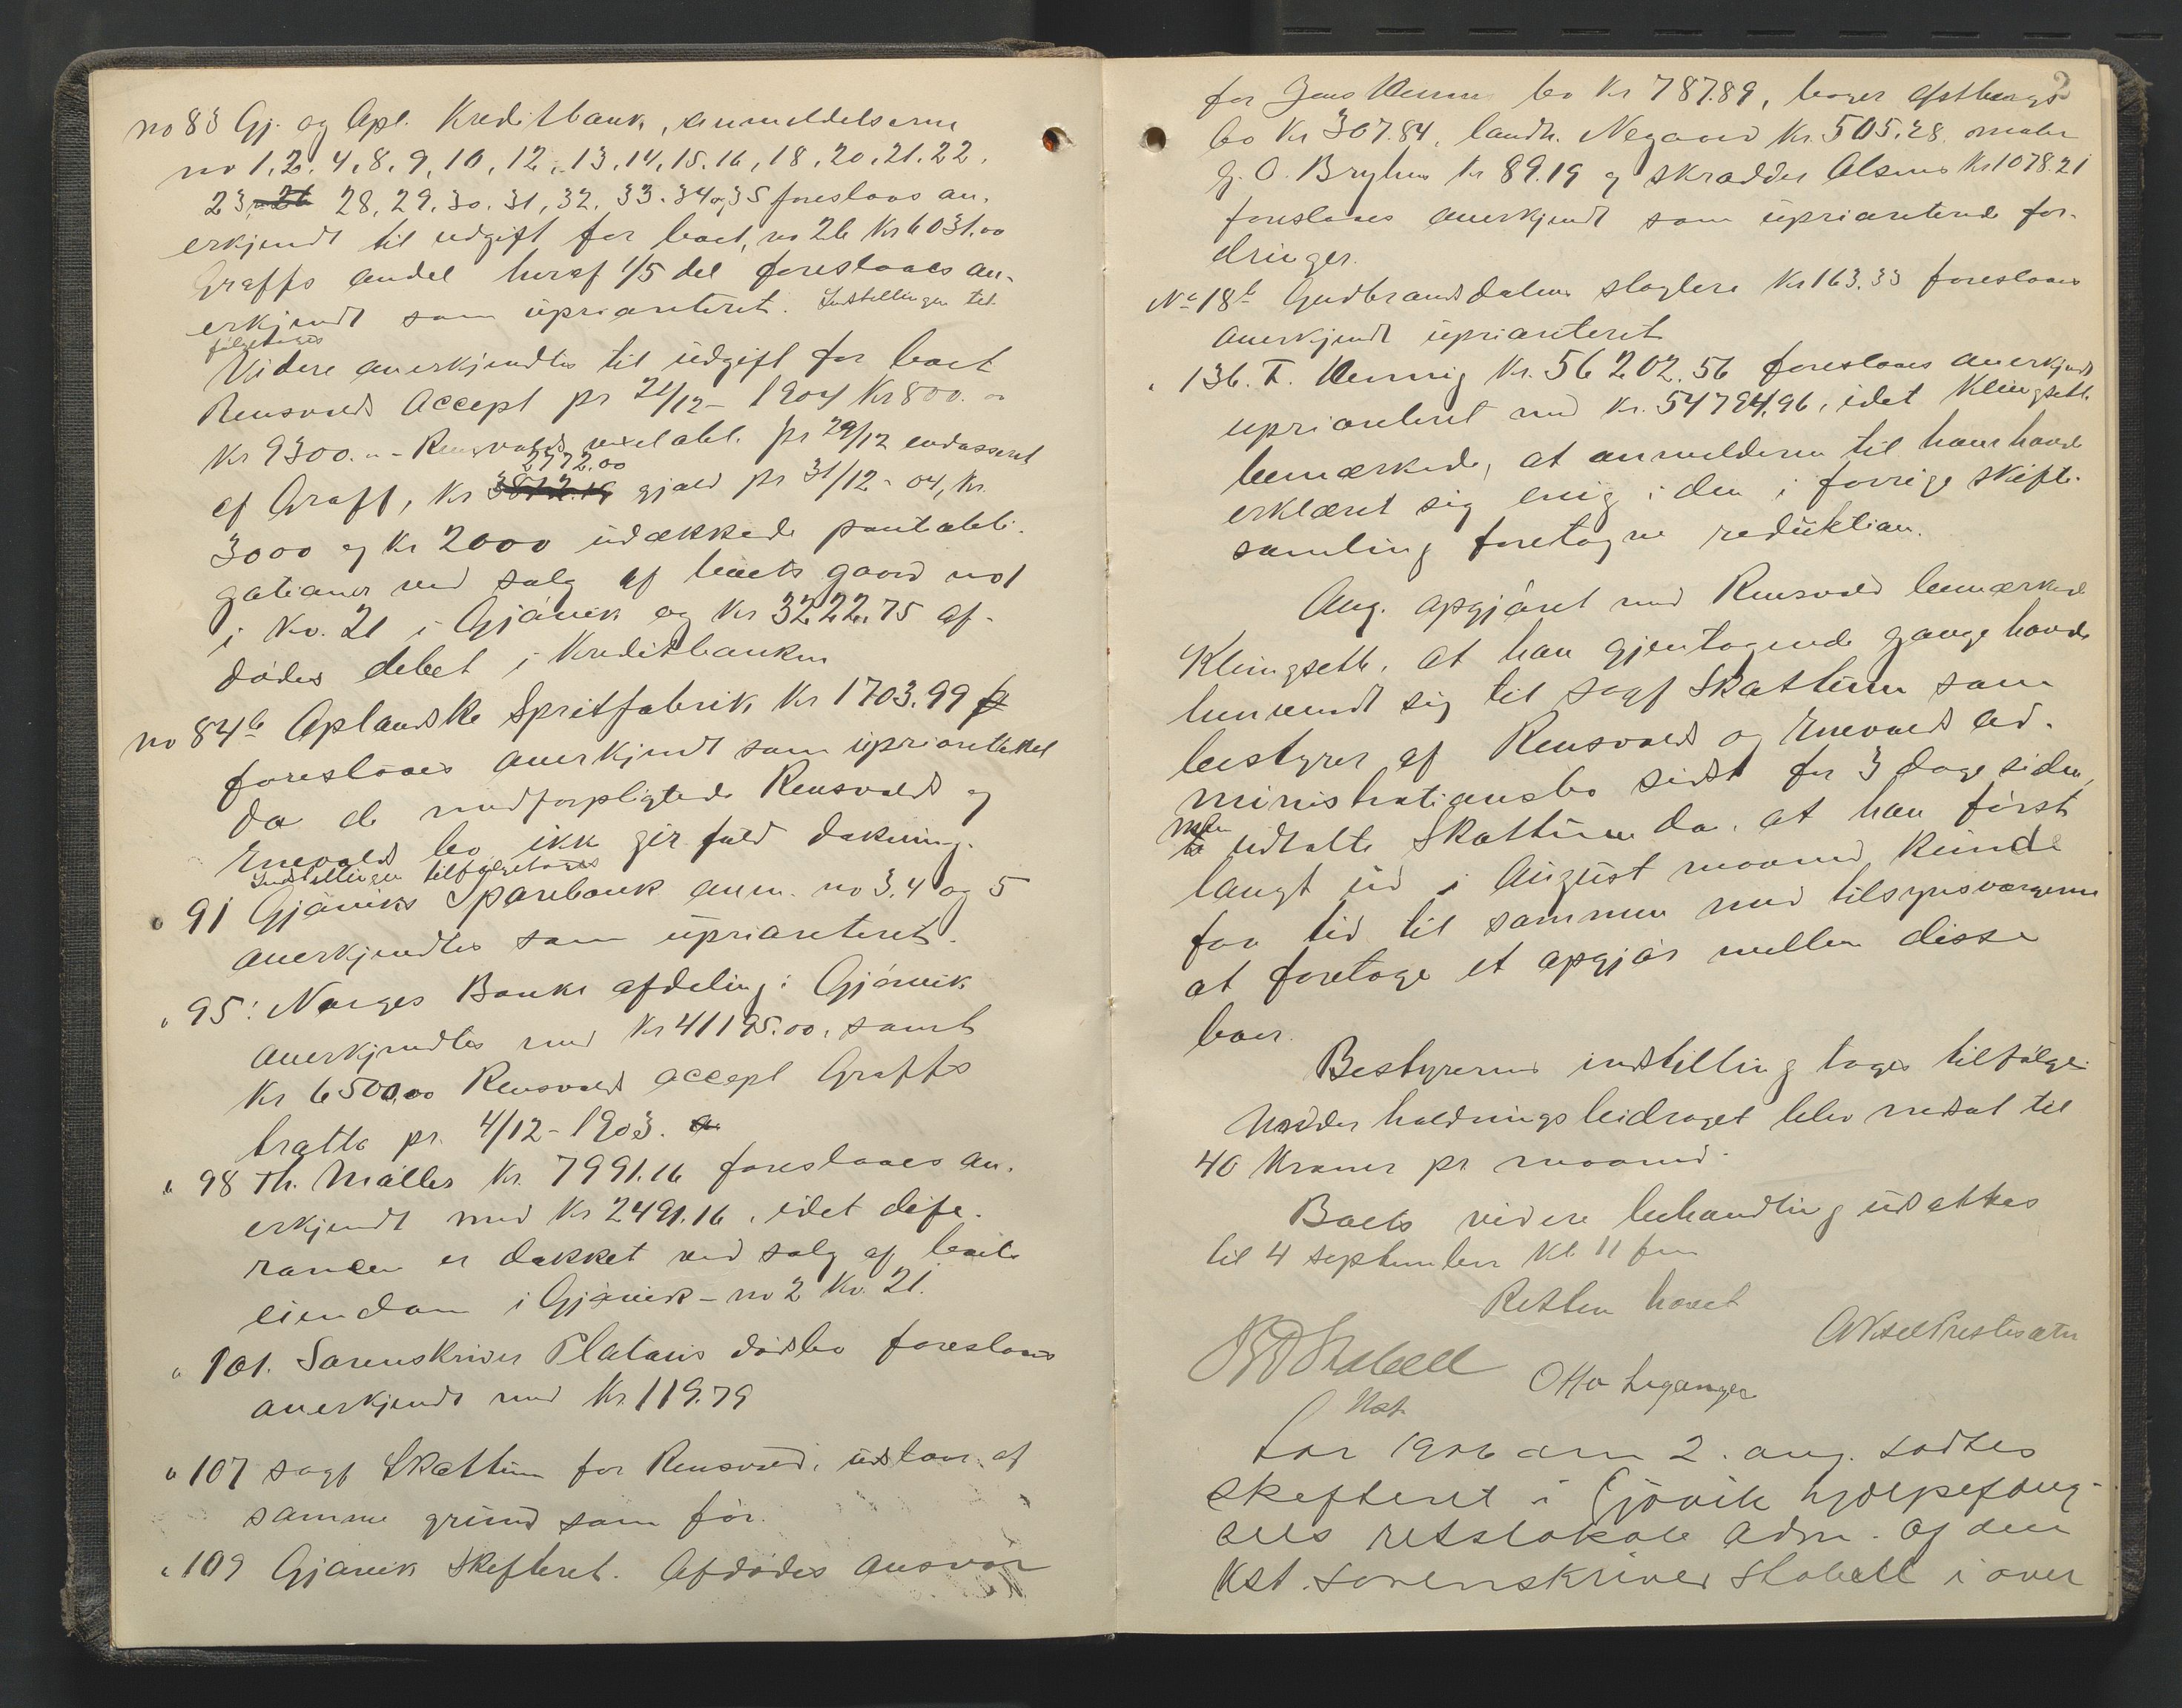 no 83 Gj. og Opl. Kreditbank, anmeldelserne
no 1, 2, 4, 8, 9, 10, 12, 13, 14, 15, 16, 18, 20, 21, 22,
23, 26 28, 29, 30, 31, 32, 33, 34 og 35 foreslaaes an-
erkjendt til udgift for boet, no 26 Kr 6031.00
Graffs andel heraf 1/5 del foreslaaes an-
erkjendt som uprioriteret. Indstillingen til
følgetages
Videre anerkjendtes til udgift for boet
Rensvolds Accept pr 24/12 - 1904 Kr 800.00
Kr 9300.00 - Rensvolds vexelobl. pr 29/12 endosseret
2772.00
af Graff, Kr gjæld pr 31/12 - 04, Kr.
3000 og Kr 2000 udækkede pantobli-
gationer ved salg af boets gaard no 1
i Kv. 21 i Gjøvik og Kr 3222.75 af-
dødes debet i Kreditbanken
no 84 b Oplandske Spritfabrik Kr 1703.99
foreslaaes anerkjendt som uprioriteret
da de medforpligtede Rensvolds og
Enevolds bo ikke gir fuld dækning.
Indstillingen tilfølgetages
" 91 Gjøviks Sparebank anm. no 3, 4 og 5
anerkjendtes som uprioriteret.
" 95: Norges Banks afdeling i Gjøvik
anerkjendtes med Kr 41195.00, samt
Kr 6500.00 Rensvolds accept Graffs
tratte pr. 4/12 - 1903.
" 98 Th. Møller Kr. 7991.16 foreslaaes an-
erkjendt med Kr 2491.16, idet dife-
rancen er dækket ved salg af boets
eiendom i Gjøvik - no 2 Kv. 21.
" 101. Sorenskriver Platous dødsbo foreslaaes
anerkjendt med Kr 119.79
" 107 sagf Skattum for Rensvold, udstaar af
samme grund som før.
" 109 Gjøvik Skifteret. Afdødes ansvar
2
for Jens bo Kr 787.89, bager
bo Kr 307.84, landh. Negaard Kr. 505.28, maler
G. O. Bryhn Kr 89.19 og skrædder Olsens Kr 1078.21
foreslaaes anerkjendt som uprioriterede for-
dringer.
No 18 b Gudbrandsdalens slagteri Kr 163.33 foreslaaes
anerkjendt uprioriteret
" 136. T. Kennig Kr. 56202.56 foreslaaes anerkjendt
uprioriteret med Kr. 54794.96, idet Klingseth.
bemærkede, at anmelderen til ham havde
erklæret sig enig i den i forrige skifte-
samling foretagne reduktion.
Ang. opgjøret med Rensvold bemærkede
Klingseth, at han gjentagende gange havde
henvendt sig til sagf Skattum som
bestyrer af Rensvolds og Enevolds ad-
ministrationsbo sidst for 3 dage siden,
men
udtalte Skattum da, at han først
langt ud i August maaned kunde
faa tid til sammen med tilsynsværgerne
at foretage et opgjør mellem disse
boer.
Bestyrerens indstilling toges tilfølge.
Underholdningsbidraget blev nedsat til
40 Kroner pr maaned.
Boets videre behandling udsattes
til 4 september Kl 11 fm
Retten hævet
Stabell
Kst.
Otto Leganger
Aksel Prestesæter
Aar 1906 den 2. aug. sattes
skifteret i Gjøvik hjælpefæng-
sels retslokale adm. af den
Kst. sorenskriver Stabell i over